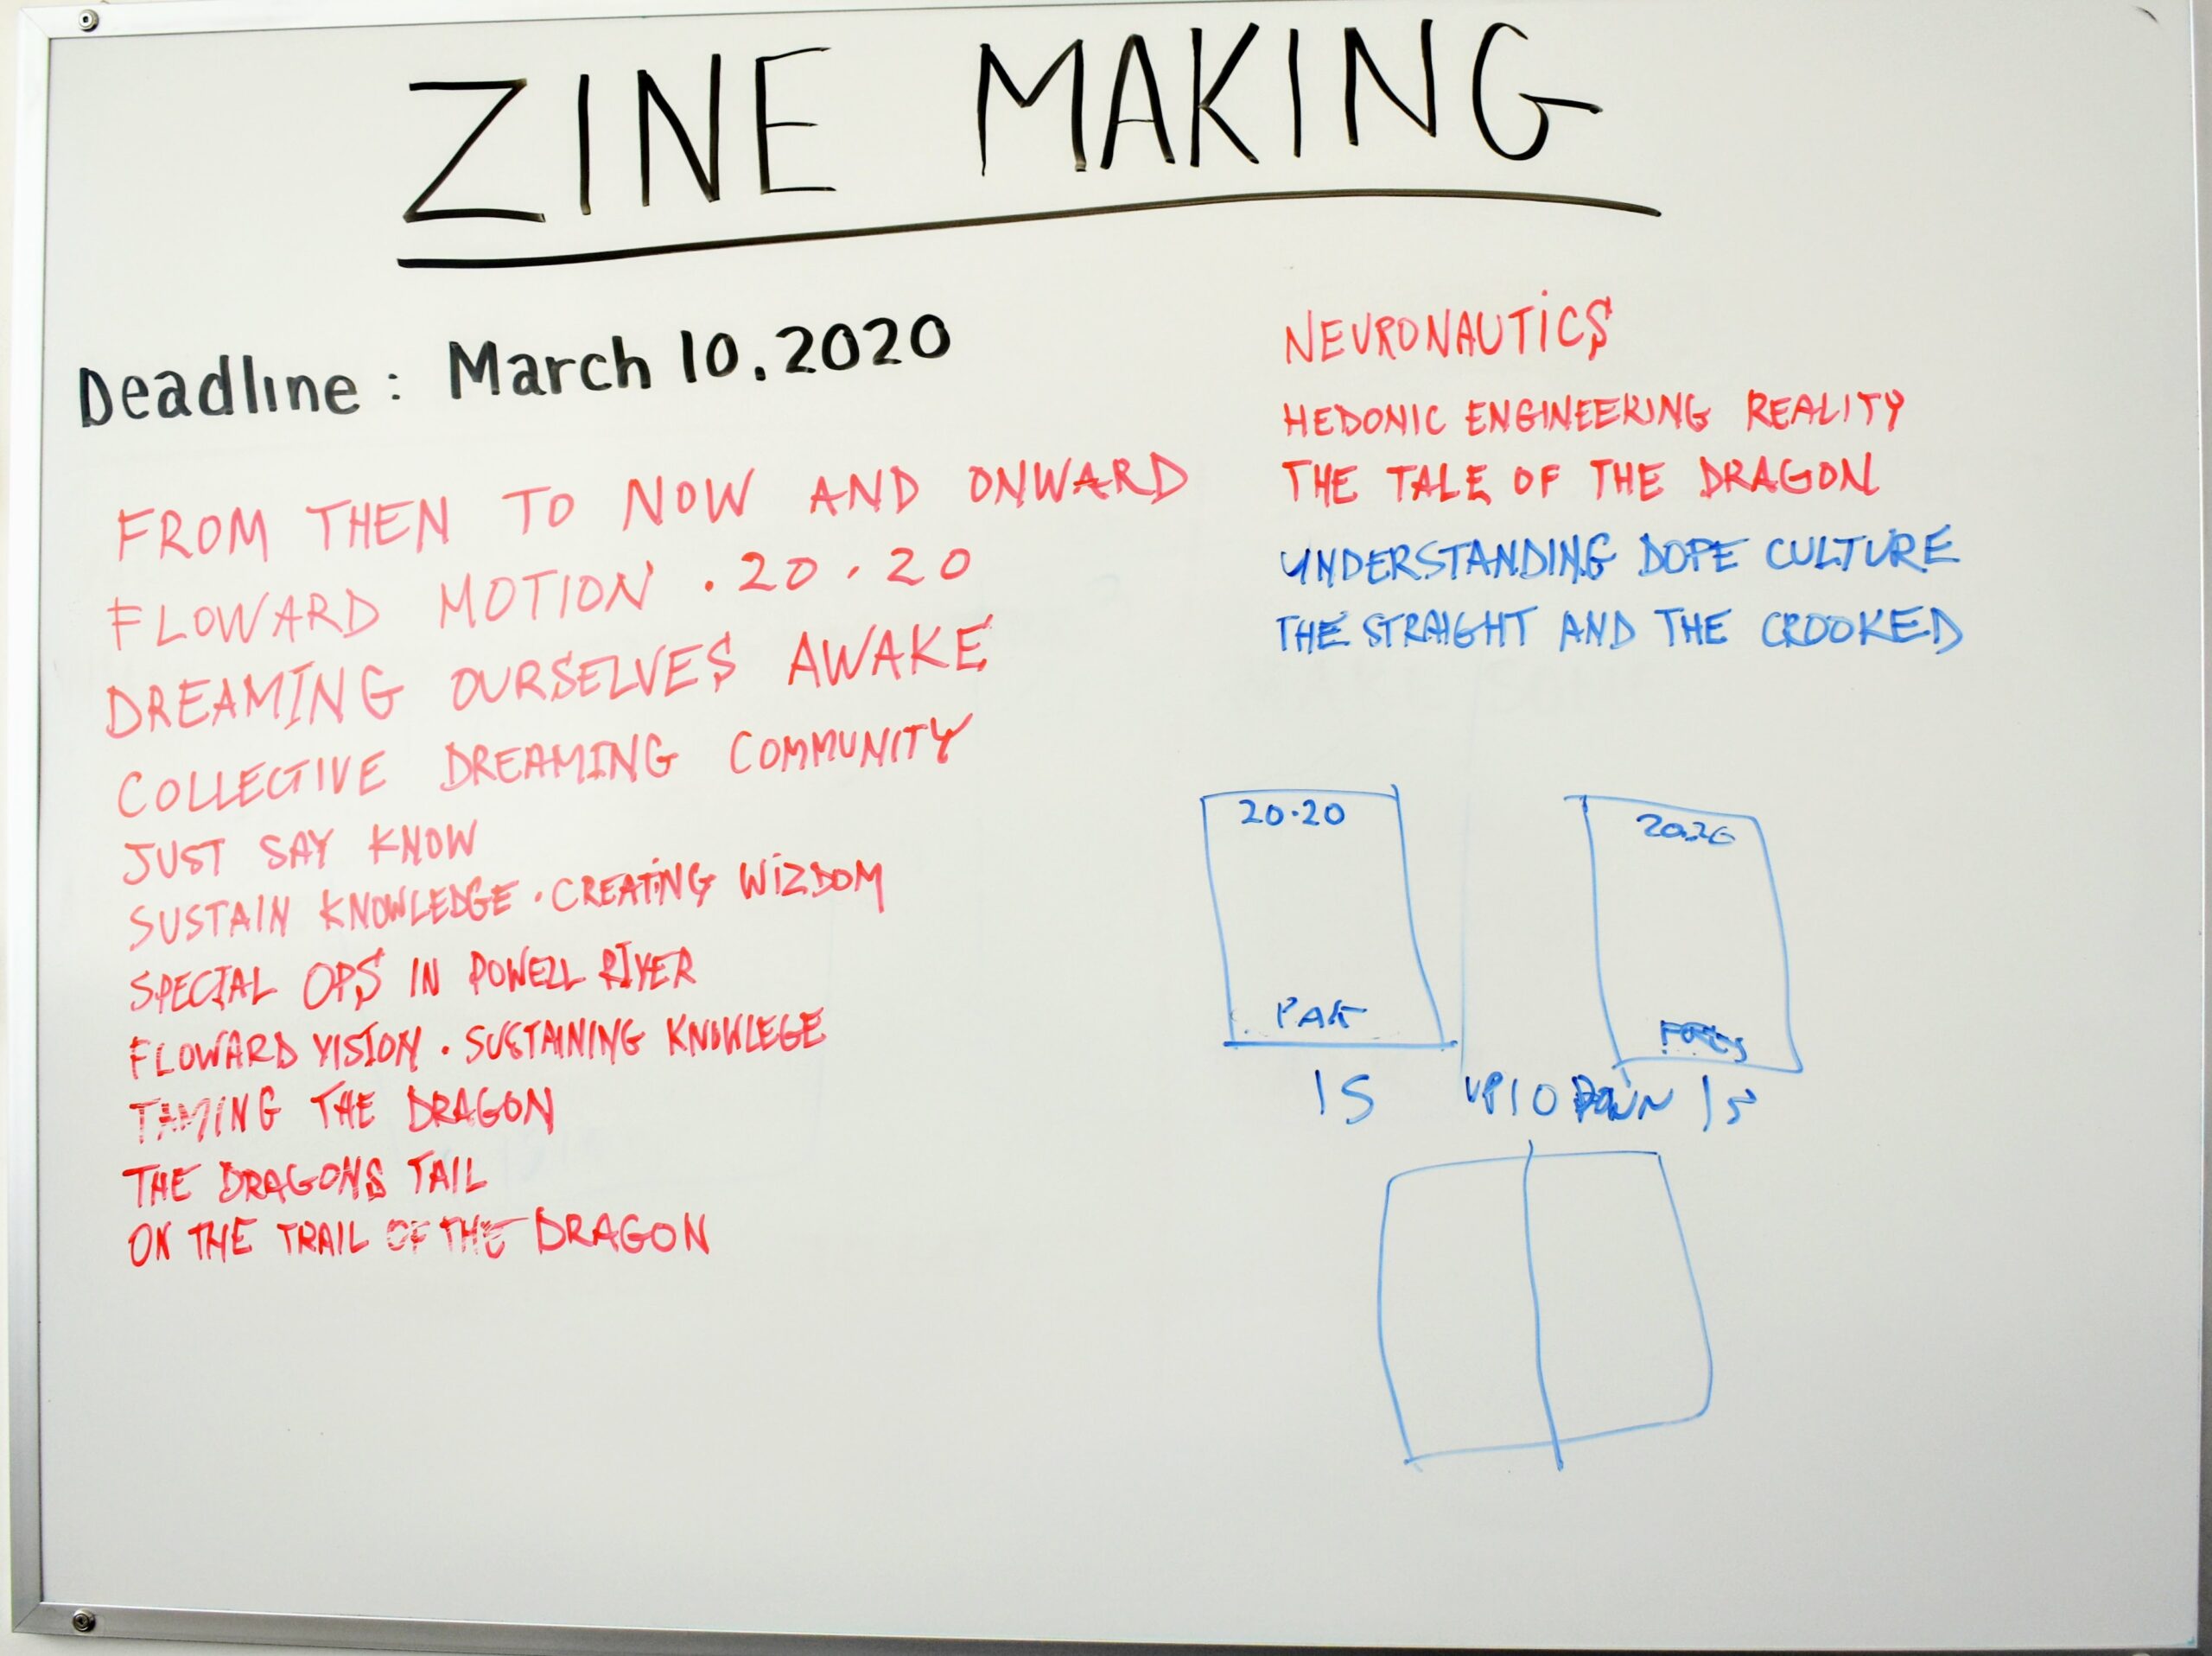 ZINE MAKING
Deadline: March 10.2020
FROM THEN TO NOW AND ONWARD
FLOWARD MOTION .20.20
DREAMING OURSELVES AWAKE
COLLECTIVE DREAMING COMMUNITY
JUST SAY KNOW
SUSTAIN KNOWLEDGE.CREATING WIZDOM
SPECIAL OPS IN POWELL RIVER
FLOWARD VISION. SUSTAINING KNOWLEGE
TAMING THE DRAGON
THE DRAGONS TAIL
ON THE TRAIL OF THE DRAGON
NEURONAUTICS
HEDONIC ENGINEERING REALITY
THE TALE OF THE DRAGON
UNDERSTANDING DOPE CULTURE
THE STRAIGHT AND THE CROOKED
20.20
15 UP 10 DOWN 15